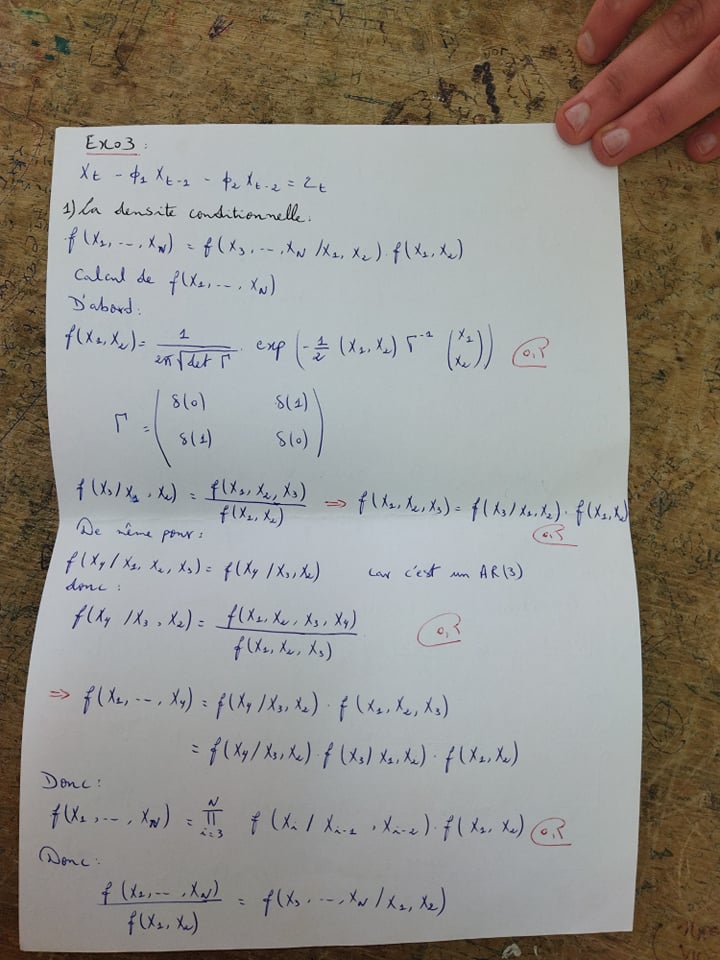 Exo3:
X_t - ϕ_1 X_{t-1} - ϕ_2 X_{t-2} = Z_t
1) la densite conditionnelle:
f(X_1, --, X_N) = f(X_3, --, X_N / X_1, X_2) . f(X_1, X_2)
Calcul de f(X_1, --, X_N)
D'abord:
f(X_1, X_2) = 1 / (2π √det Γ) . exp (-1/2 (X_1, X_2) Γ^{-1} (X_1 X_2)) 0,5
Γ = ( δ(0) δ(1)
δ(1) δ(0) )
f(X_3/X_1, X_2) = f(X_1, X_2, X_3) / f(X_1, X_2) ⇒ f(X_1, X_2, X_3) = f(X_3/X_1, X_2) . f(X_1, X_2)
0,5
De même pour:
f(X_4 / X_1, X_2, X_3) = f(X_4 / X_3, X_2) car c'est un AR(3)
donc:
f(X_4 / X_3, X_2) = f(X_1, X_2, X_3, X_4) / f(X_1, X_2, X_3) 0,5
⇒ f(X_1, --, X_4) = f(X_4 / X_3, X_2) . f(X_1, X_2, X_3)
= f(X_4 / X_3, X_2) . f(X_3 / X_1, X_2) . f(X_1, X_2)
Donc:
f(X_1, --, X_N) = ∏_{i=3}^{N} f(X_i / X_{i-1}, X_{i-2}) . f(X_1, X_2) 0,5
Donc:
f(X_1, --, X_N) / f(X_1, X_2) = f(X_3, --, X_N / X_1, X_2)